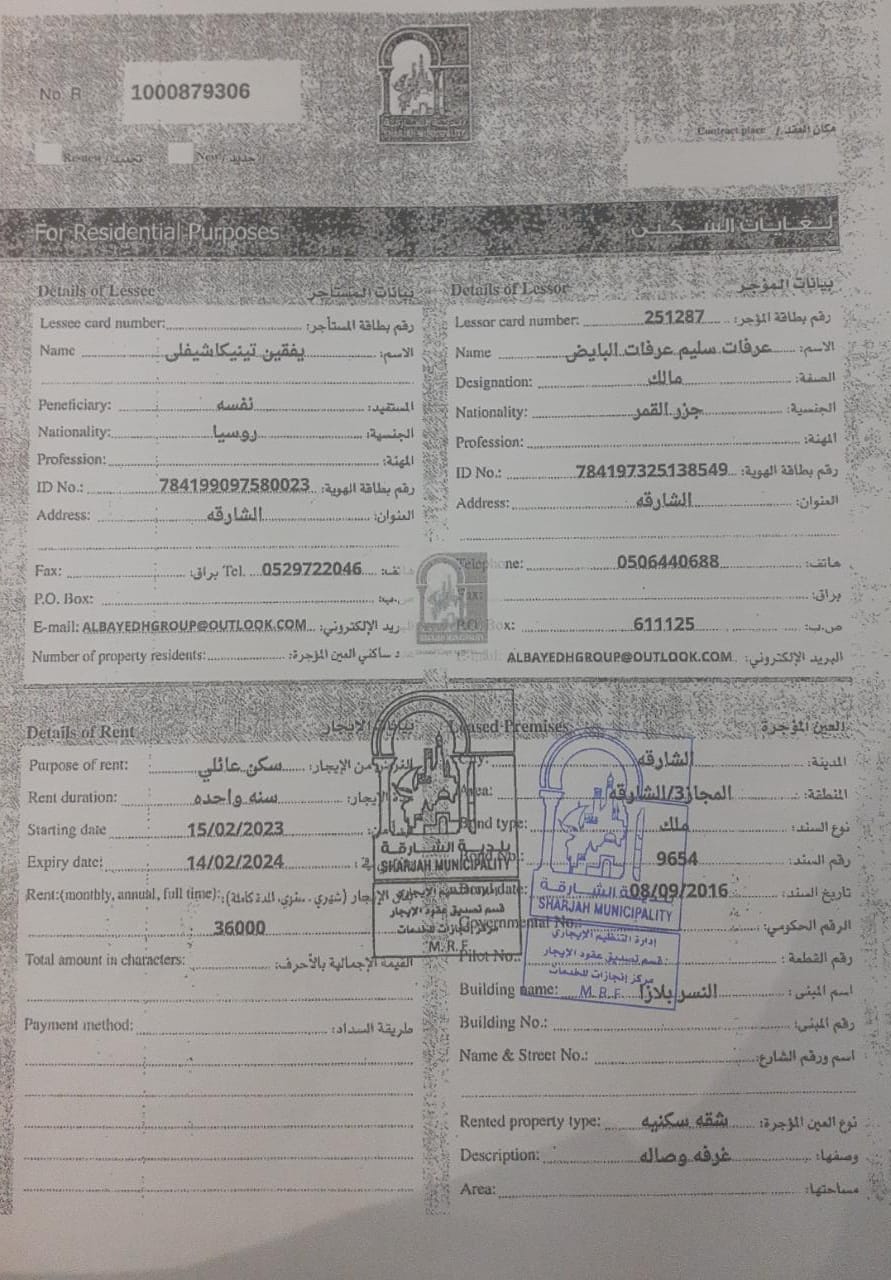 No R 1000879306
بلدية الشارقة
SHARJAH MUNICIPALITY
Contract place / مكان العقد
Renew / تجديد New / جديد
For Residential Purposes لغايات السكنى
Details of Lessee بيانات المستأجر
Lessee card number: رقم بطاقة المستأجر:
Name يفقين تينيكاشيفلى الاسم:
Peneficiary: نفسه المستفيد:
Nationality: روسيا الجنسية:
Profession: المهنة:
ID No.: 784199097580023 رقم بطاقة الهوية:
Address: الشارقه العنوان:
Fax: براق: Tel. 0529722046
P.O. Box:
E-mail: ALBAYEDHGROUP@OUTLOOK.COM ريد الإلكتروني:
Number of property residents: د ساكني العين المؤجرة:
Details of Lessor بيانات المؤجر
Lessor card number: 251287 رقم بطاقة المؤجر:
Name عرفات سليم عرفات البايض الاسم:
Designation: مالك الصفة:
Nationality: جزر القمر الجنسية:
Profession: المهنة:
ID No.: 784197325138549 رقم بطاقة الهوية:
Address: الشارقه العنوان:
Telephone: 0506440688 هاتف:
Fax: براق:
P.O. Box: 611125 ص.ب:
E-mail: ALBAYEDHGROUP@OUTLOOK.COM البريد الإلكتروني:
Details of Rent بيانات الإيجار
Purpose of rent: سكن عائلي من الإيجار:
Rent duration: سنه واحده الإيجار:
Starting date 15/02/2023
Expiry date: 14/02/2024
Rent:(monthly, annual, full time): الإيجار (شهري ، سنوي، المدة كاملة):
36000
Total amount in characters: القيمة الإجمالية بالأحرف:
Payment method: طريقة السداد:
Leased Premises العين المؤجرة
City: الشارقه المدينة:
Area: المجاز3/الشارقه المنطقة:
Bond type: ملك نوع السند:
Bond No.: 9654 رقم السند:
Bond date: 08/09/2016 تاريخ السند:
Governmental No.: الرقم الحكومي:
Pilot No.: رقم القطعة:
Building name: النسر بلازا اسم المبنى:
Building No.: رقم المبنى:
Name & Street No.: اسم ورقم الشارع:
Rented property type: شقه سكنيه نوع العين المؤجرة:
Description: غرفه وصاله وصفها:
Area: مساحتها:
بلدية الشارقة
SHARJAH MUNICIPALITY
قسم تصديق عقود الإيجار
مركز إنجازات للخدمات
M.R.F
بلدية الشارقة
SHARJAH MUNICIPALITY
إدارة التنظيم الإيجاري
قسم تصديق عقود الإيجار
مركز إنجازات للخدمات
M.R.F